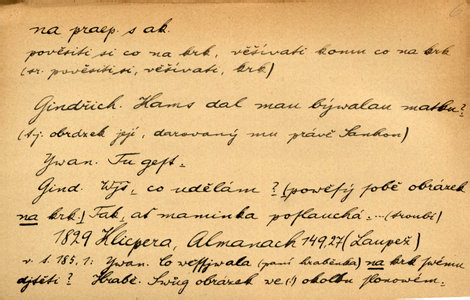 na praep. s ak.
pověsiti si co na krk, věšívati komu co na krk
(sr. pověsiti si, věšívati, krk)
Gindřich. Hans dal mau býwalau matku?
(t.j. obrázek její, darovaný mu právě Sankou)
Ywan. Tu gest.
Gind. Wjš, co udělám? (powěsý sobě obrázek
na krk.) Tak, ať maminka poslauchá... (troubí)
1829 Klicpera, Almanach 149,27 (Laupež)
v. s. 185,1: Ywan. Co wěssjwala (paní hraběnka) na krk swému
djtěti? Hrabě. Swůg obrázek we okolku slonowém.